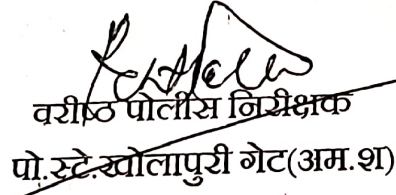 वरीष्ठ पोलीस निरीक्षक
पो.स्टे.खोलापुरी गेट(अम.श)